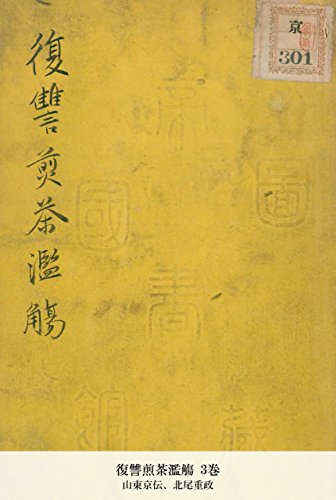 京
301
復讐煎茶濫觴
帝國圖書館藏
復讐煎茶濫觴 3巻
山東京伝、北尾重政